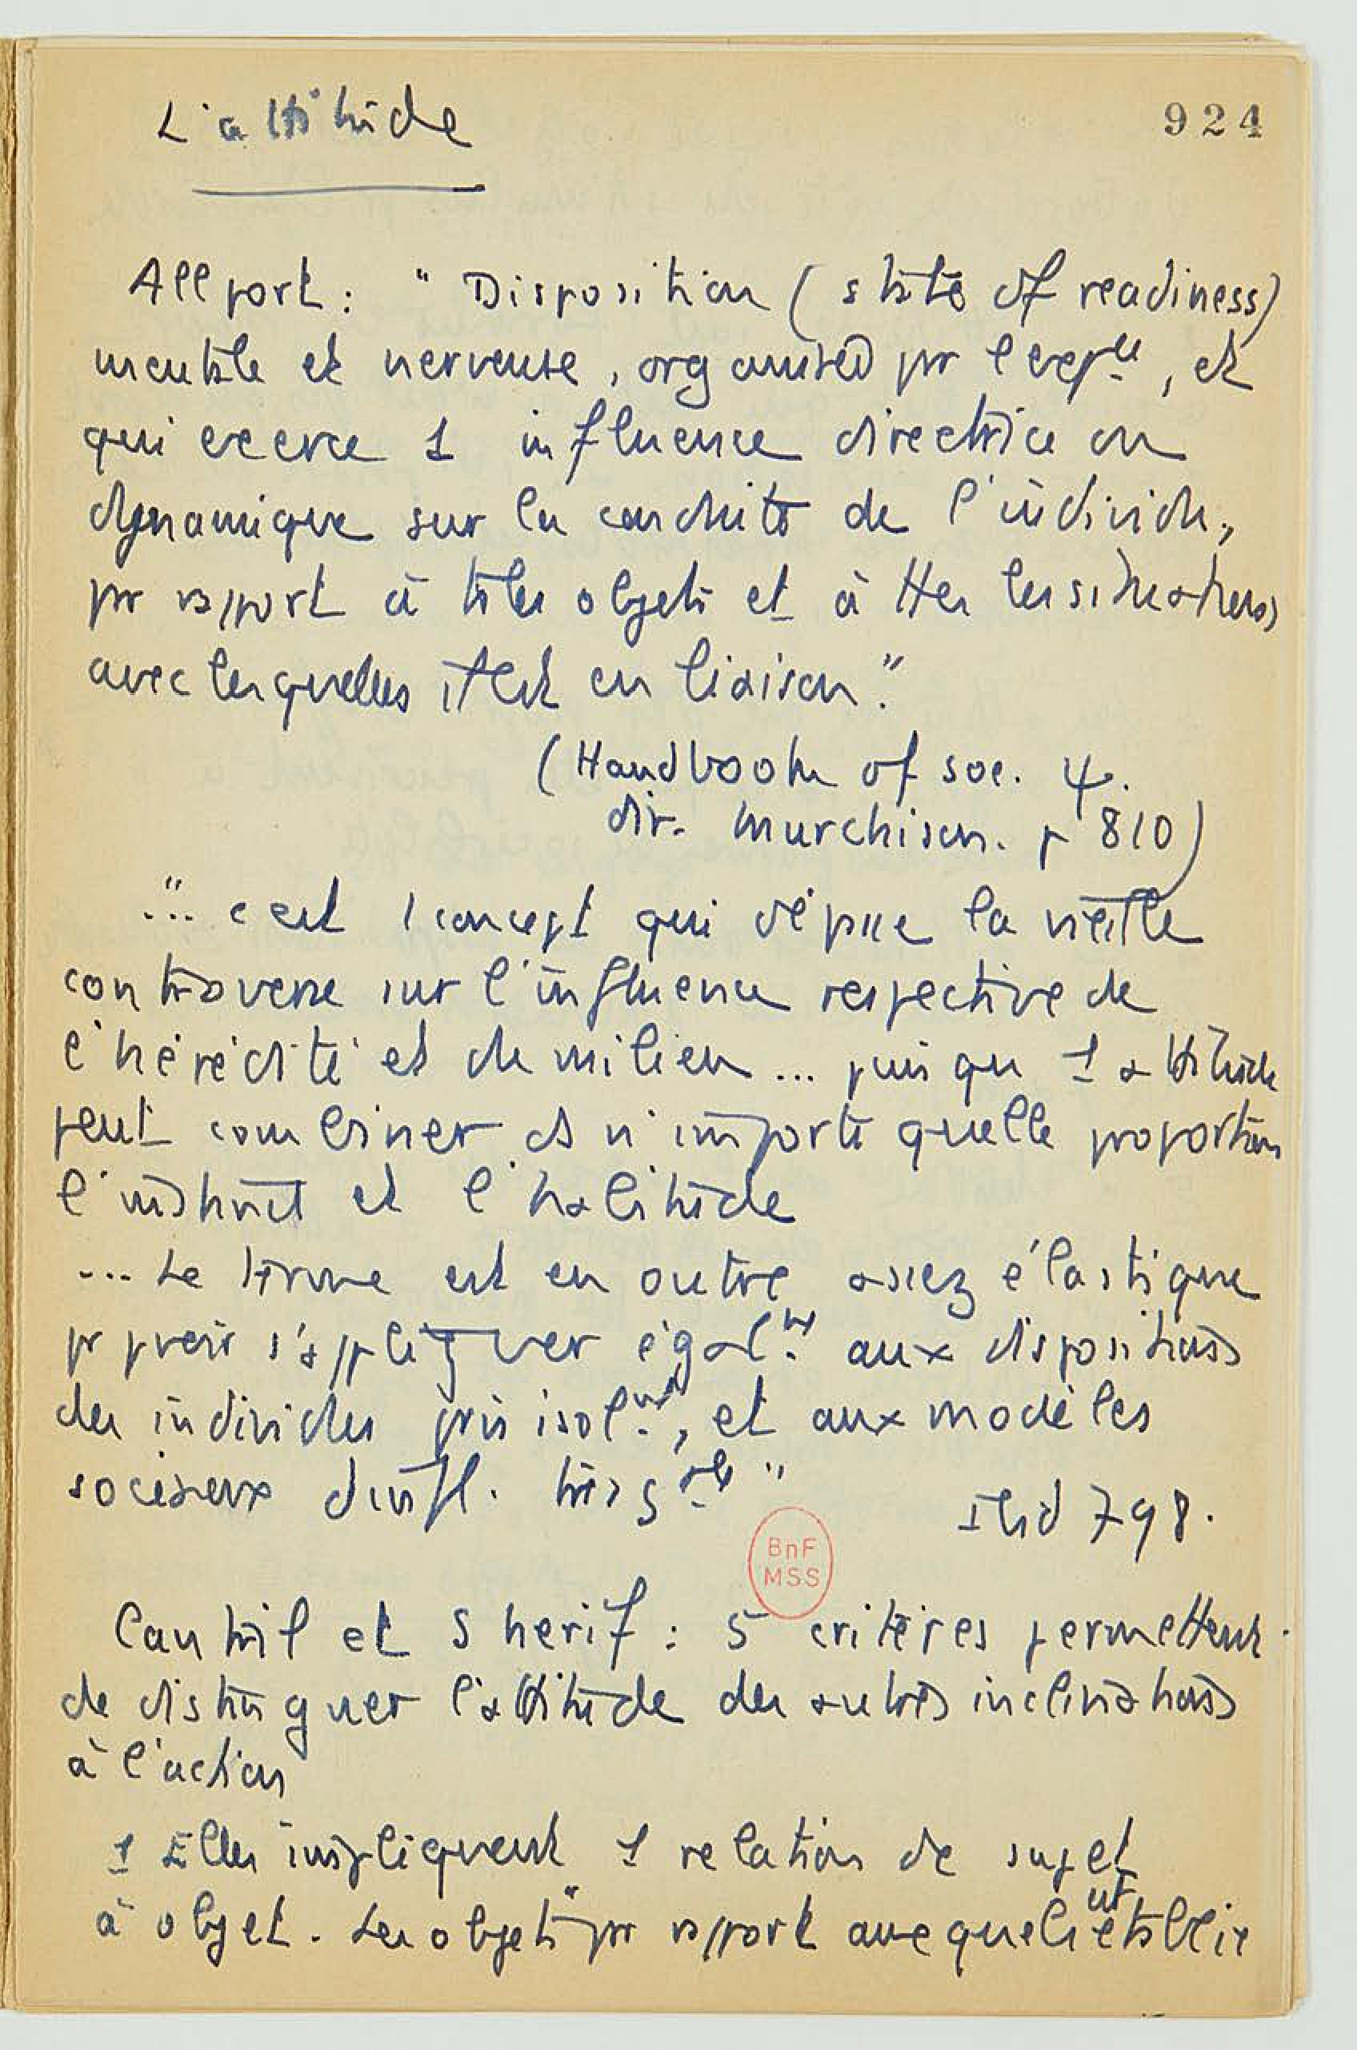 L'attitude
924
Allport : " Disposition (state of readiness)
mentale et nerveuse, organisée pr l'expce, et
qui exerce 1 influence directrice ou
dynamique sur la conduite de l'individu,
pr rapport à ts les objets et à ttes les situations
avec lesquelles il est en liaison."
(Handbook of soc. ψ.
dir. Murchison. p 810)
"... c'est 1 concept qui dépasse la vieille
controverse sur l'influence respective de
l'hérédité et du milieu ... puisqu 1 attitude
peut combiner ds n'importe quelle proportion
l'instinct et l'habitude
... Le terme est en outre assez élastique
pr pvoir s'appliquer égalmt aux dispositions
des individus pris isolmt, et aux modèles
sociaux d'infl. très gale "
Ibid 798.
BnF
MSS
Cantril et Sherif : 5 critères permettent
de distinguer l'attitude des autres inclinations
à l'action
1 Elles impliquent 1 relation de sujet
à objet. Les objets "pr rapport auxquels ut établir